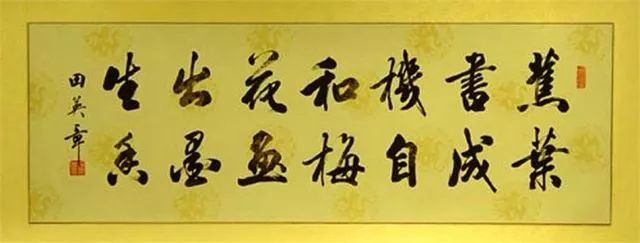 蕉葉
書成
機自
和梅
花畫
出墨
生香
田英章